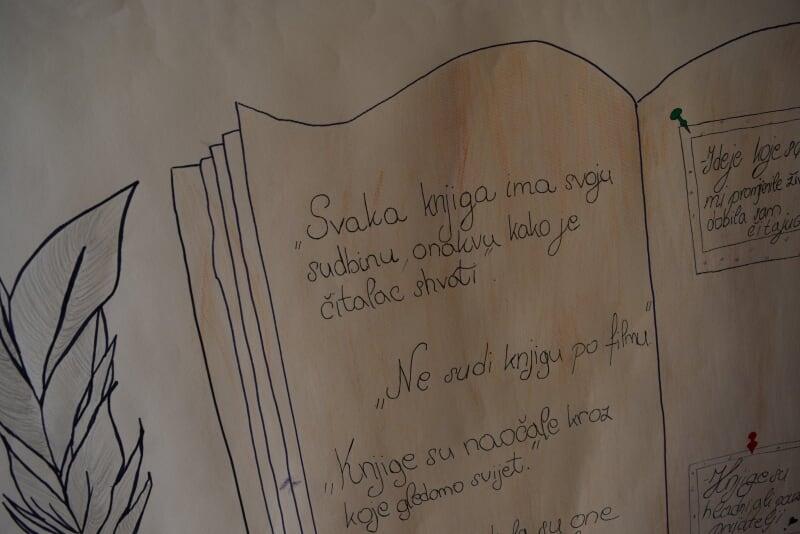 „Svaka knjiga ima svoju
sudbinu, onakvu kako je
čitalac shvati".
„Ne sudi knjigu po filmu"
„Knjige su naočale kroz
koje gledamo svijet."
su one
-Ideje koje
mi promjenile
dobila sam
čitajuć
-Knjige su
hladni ali
prijatelji